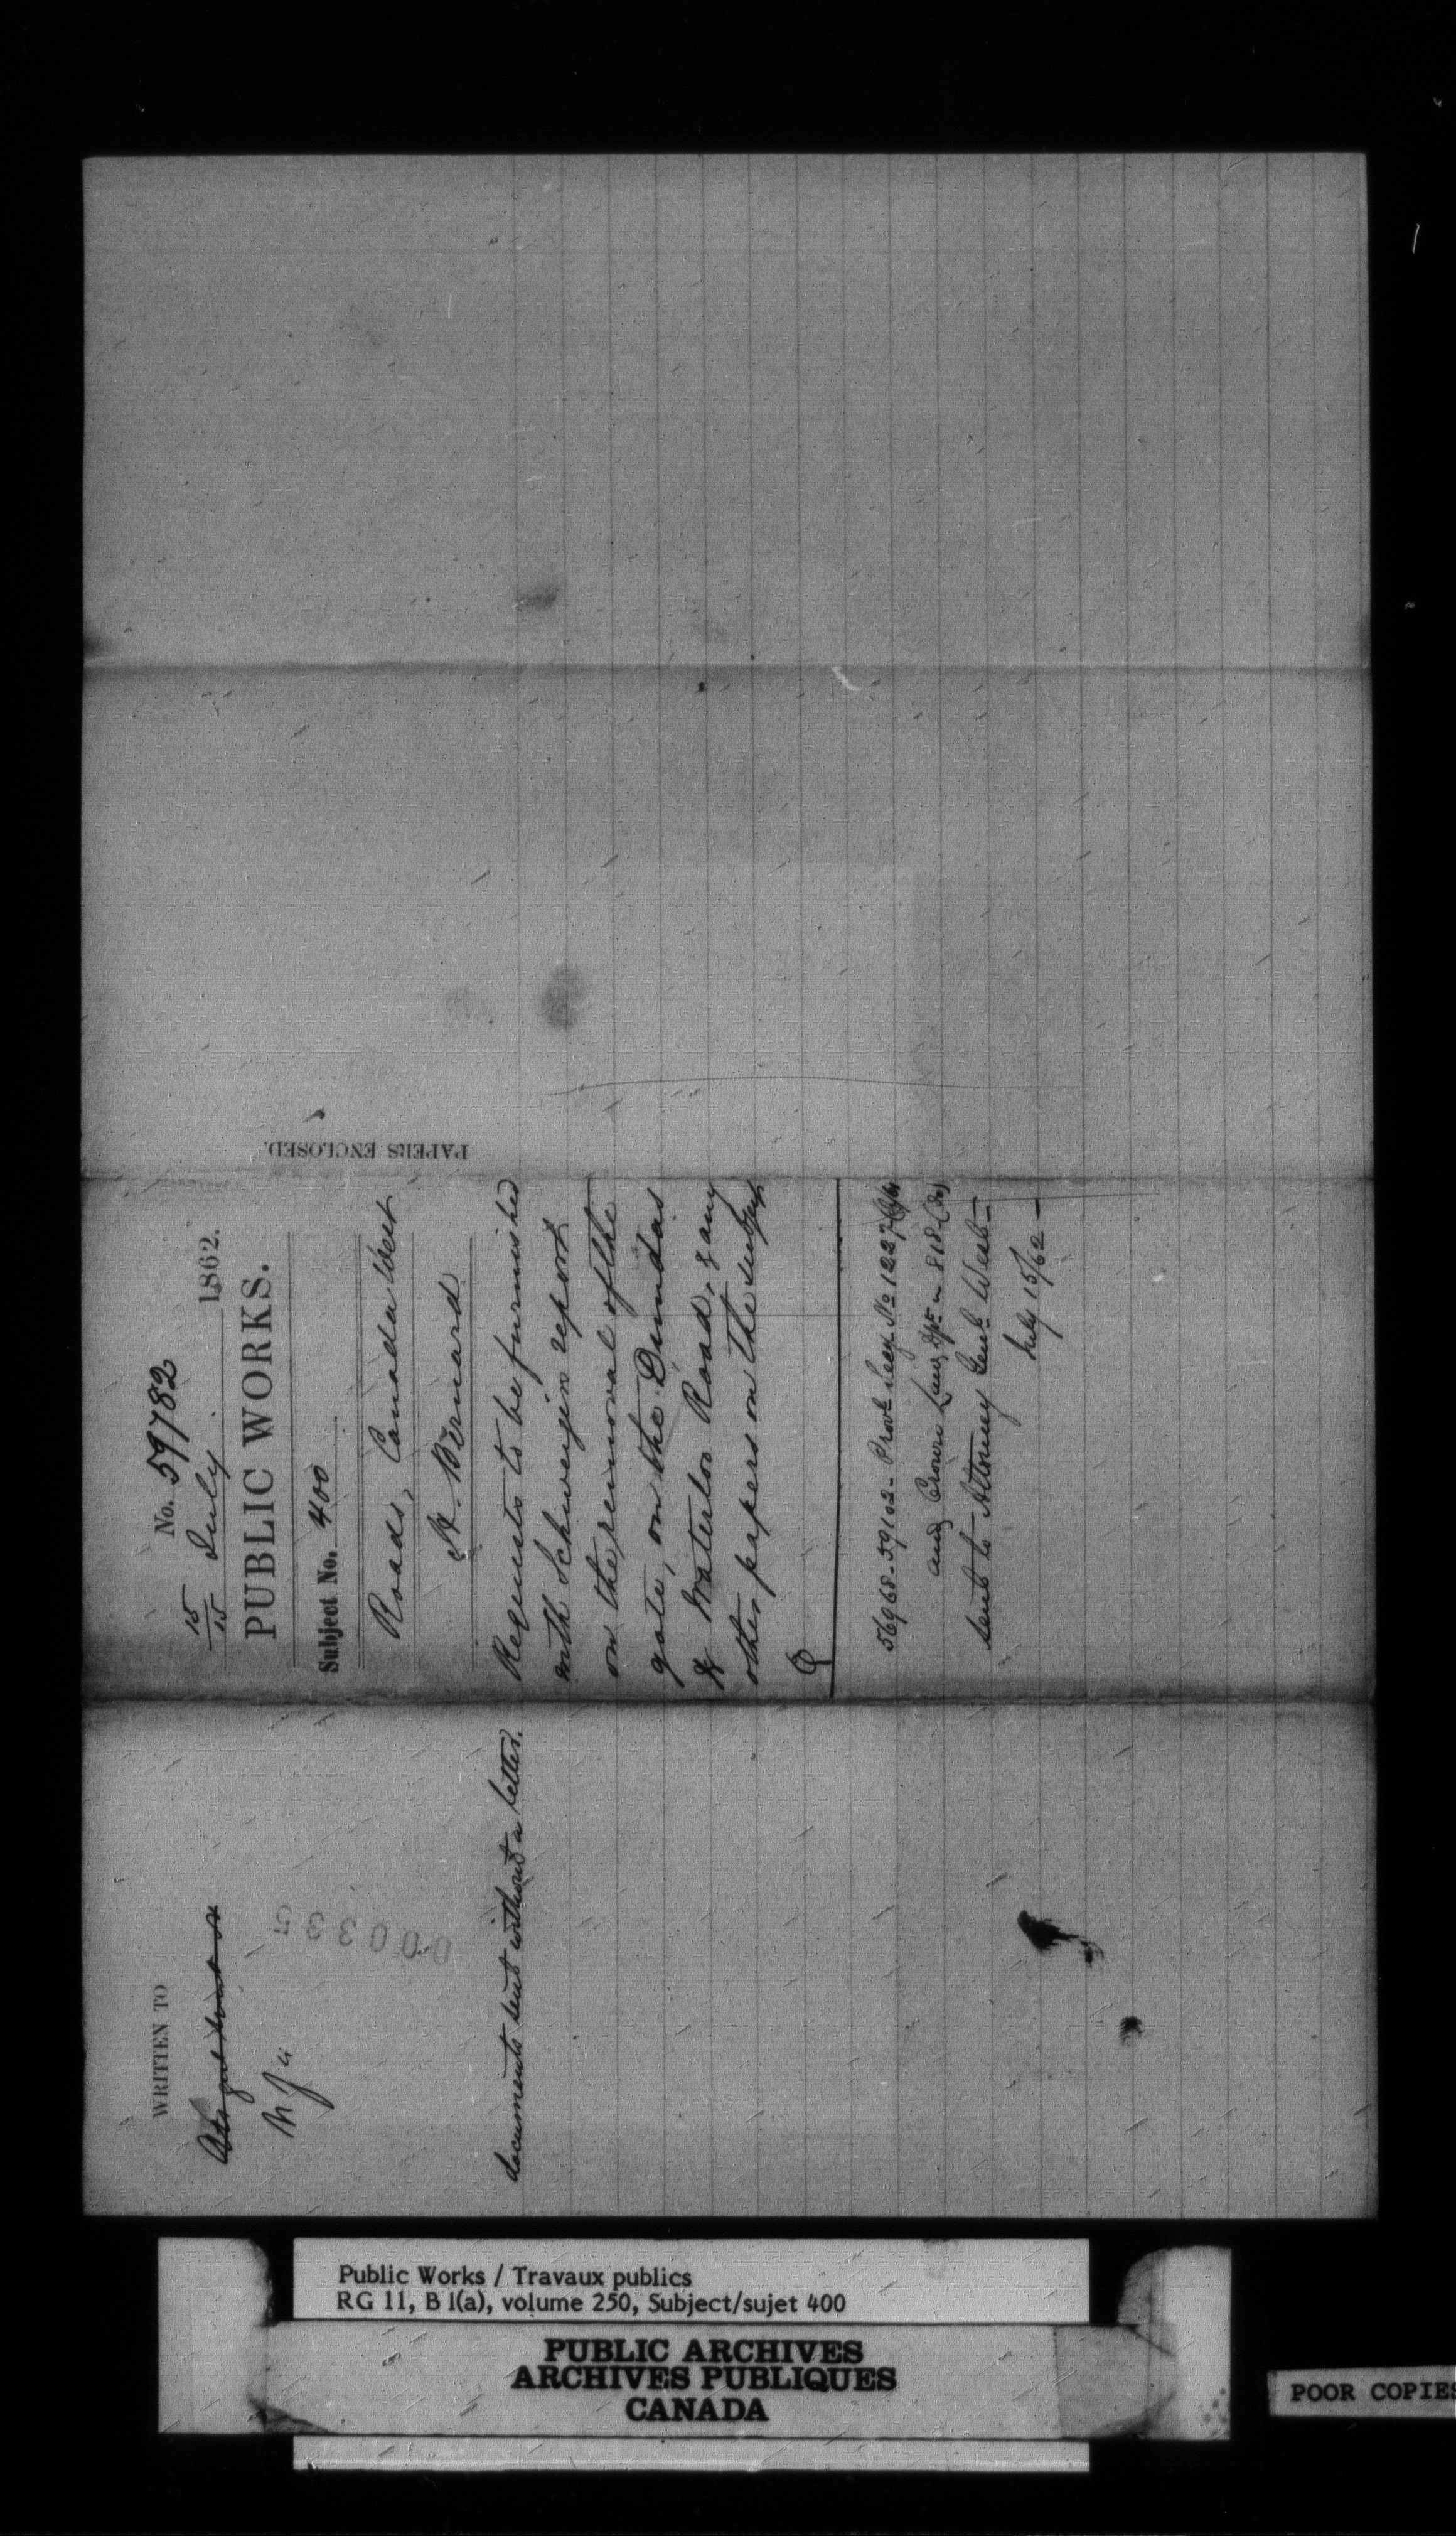 No. 59782
15/15 July 1862.
PUBLIC WORKS.
Subject No. 400
Roads, Canada West
H. Bernard
Requests to be furnished
with Schwergin report
on the removal of the
gate, on the Dundas
& Waterloo Road, & any
other papers on the subject
56968-59102- Provl Secy No 1227
and Crown Law Dpt - 818
Sent to Attorney Genl West-
July 15/62-
PAPERS ENCLOSED.
WRITTEN TO
00335
documents sent without a letter.
Public Works / Travaux publics
RG 11, B 1(a), volume 250, Subject/sujet 400
PUBLIC ARCHIVES
ARCHIVES PUBLIQUES
CANADA
POOR COPIES